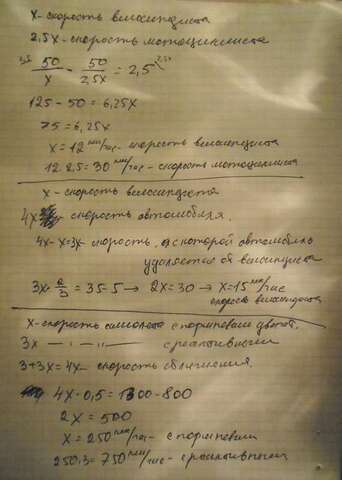 x - скорость велосипедиста
2,5x - скорость мотоциклиста
50/x - 50/2,5x = 2,5
125 - 50 = 6,25x
75 = 6,25x
x = 12 км/час - скорость велосипедиста
12·2,5 = 30 км/час - скорость мотоциклиста
x - скорость велосипедиста
4x скорость автомобиля.
4x - x = 3x - скорость, с которой автомобиль
удаляется от велосипед
3x · 2/3 = 35 - 5 → 2x = 30 → x = 15 км/час
скорость велосипедиста
x - скорость самолета с поршневым двигат.
3x — " — " — с реактивным
3 + 3x = 4x - скорость сближения.
4x · 0,5 = 1300 - 800
2x = 500
x = 250 км/час - с поршневым
250·3 = 750 км/час - с реактивным